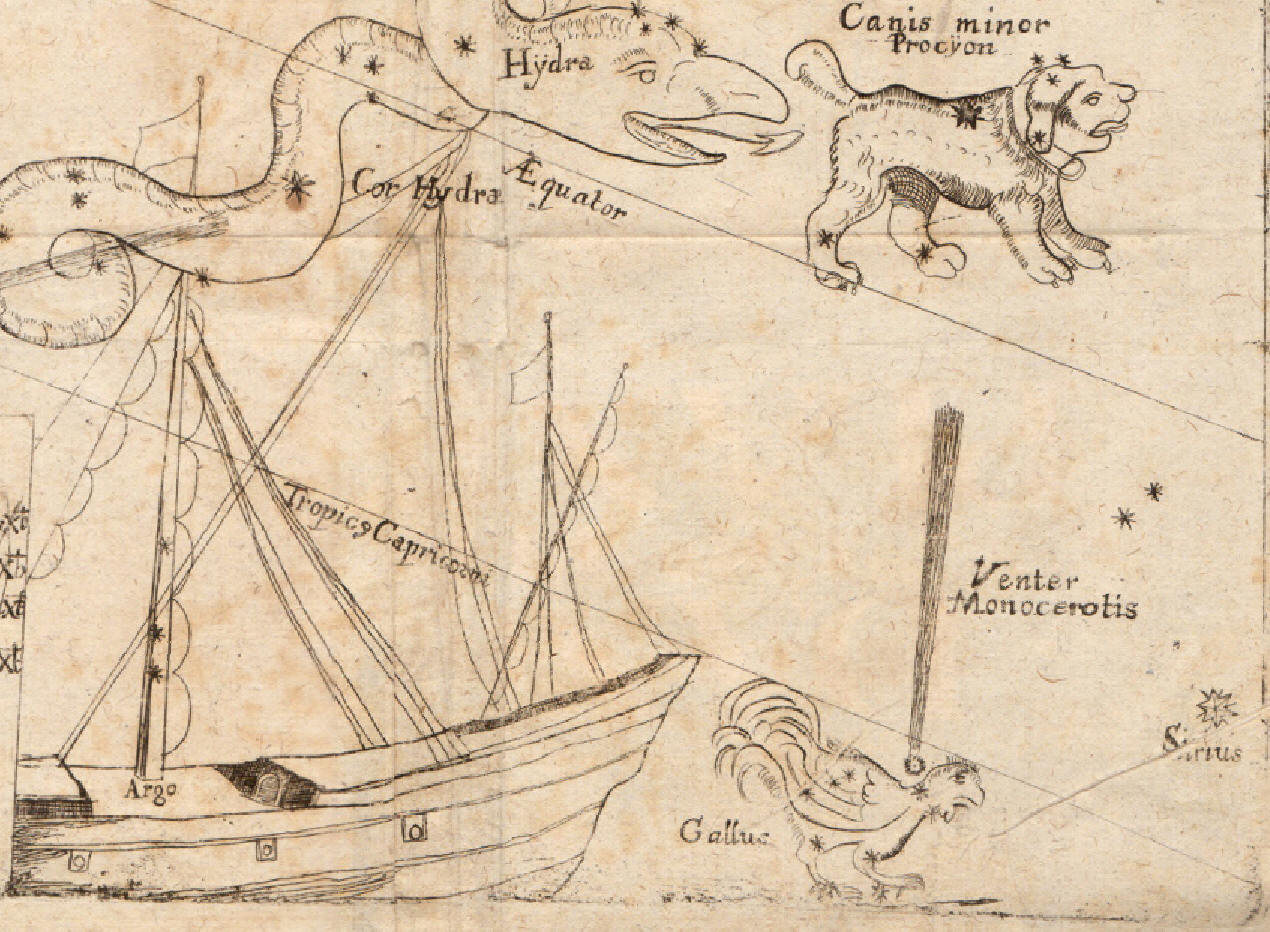 Canis minor
Procÿon
Hÿdra
Cor Hydræ
Æquator
Tropicꝰ Capricorni
Venter
Monocerotis
Sirius
Argo
Gallus